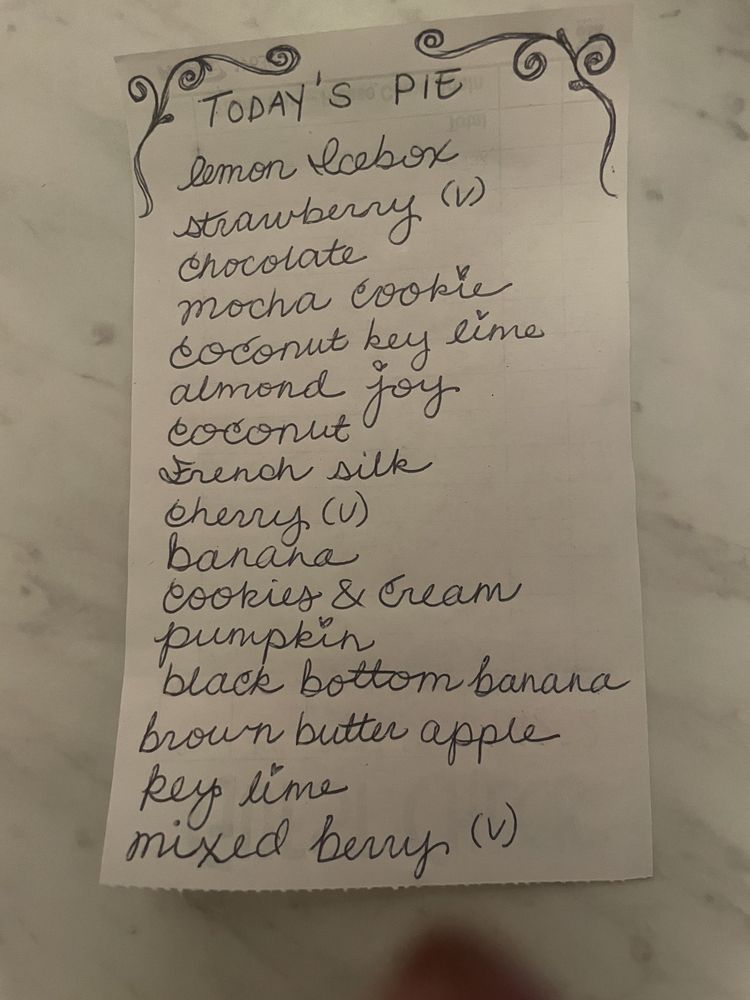 TODAY'S PIE
lemon Icebox
strawberry (V)
chocolate
mocha cookie
coconut key lime
almond joy
coconut
French silk
cherry (V)
banana
cookies & cream
pumpkin
black bottom banana
brown butter apple
key lime
mixed berry (V)
Total